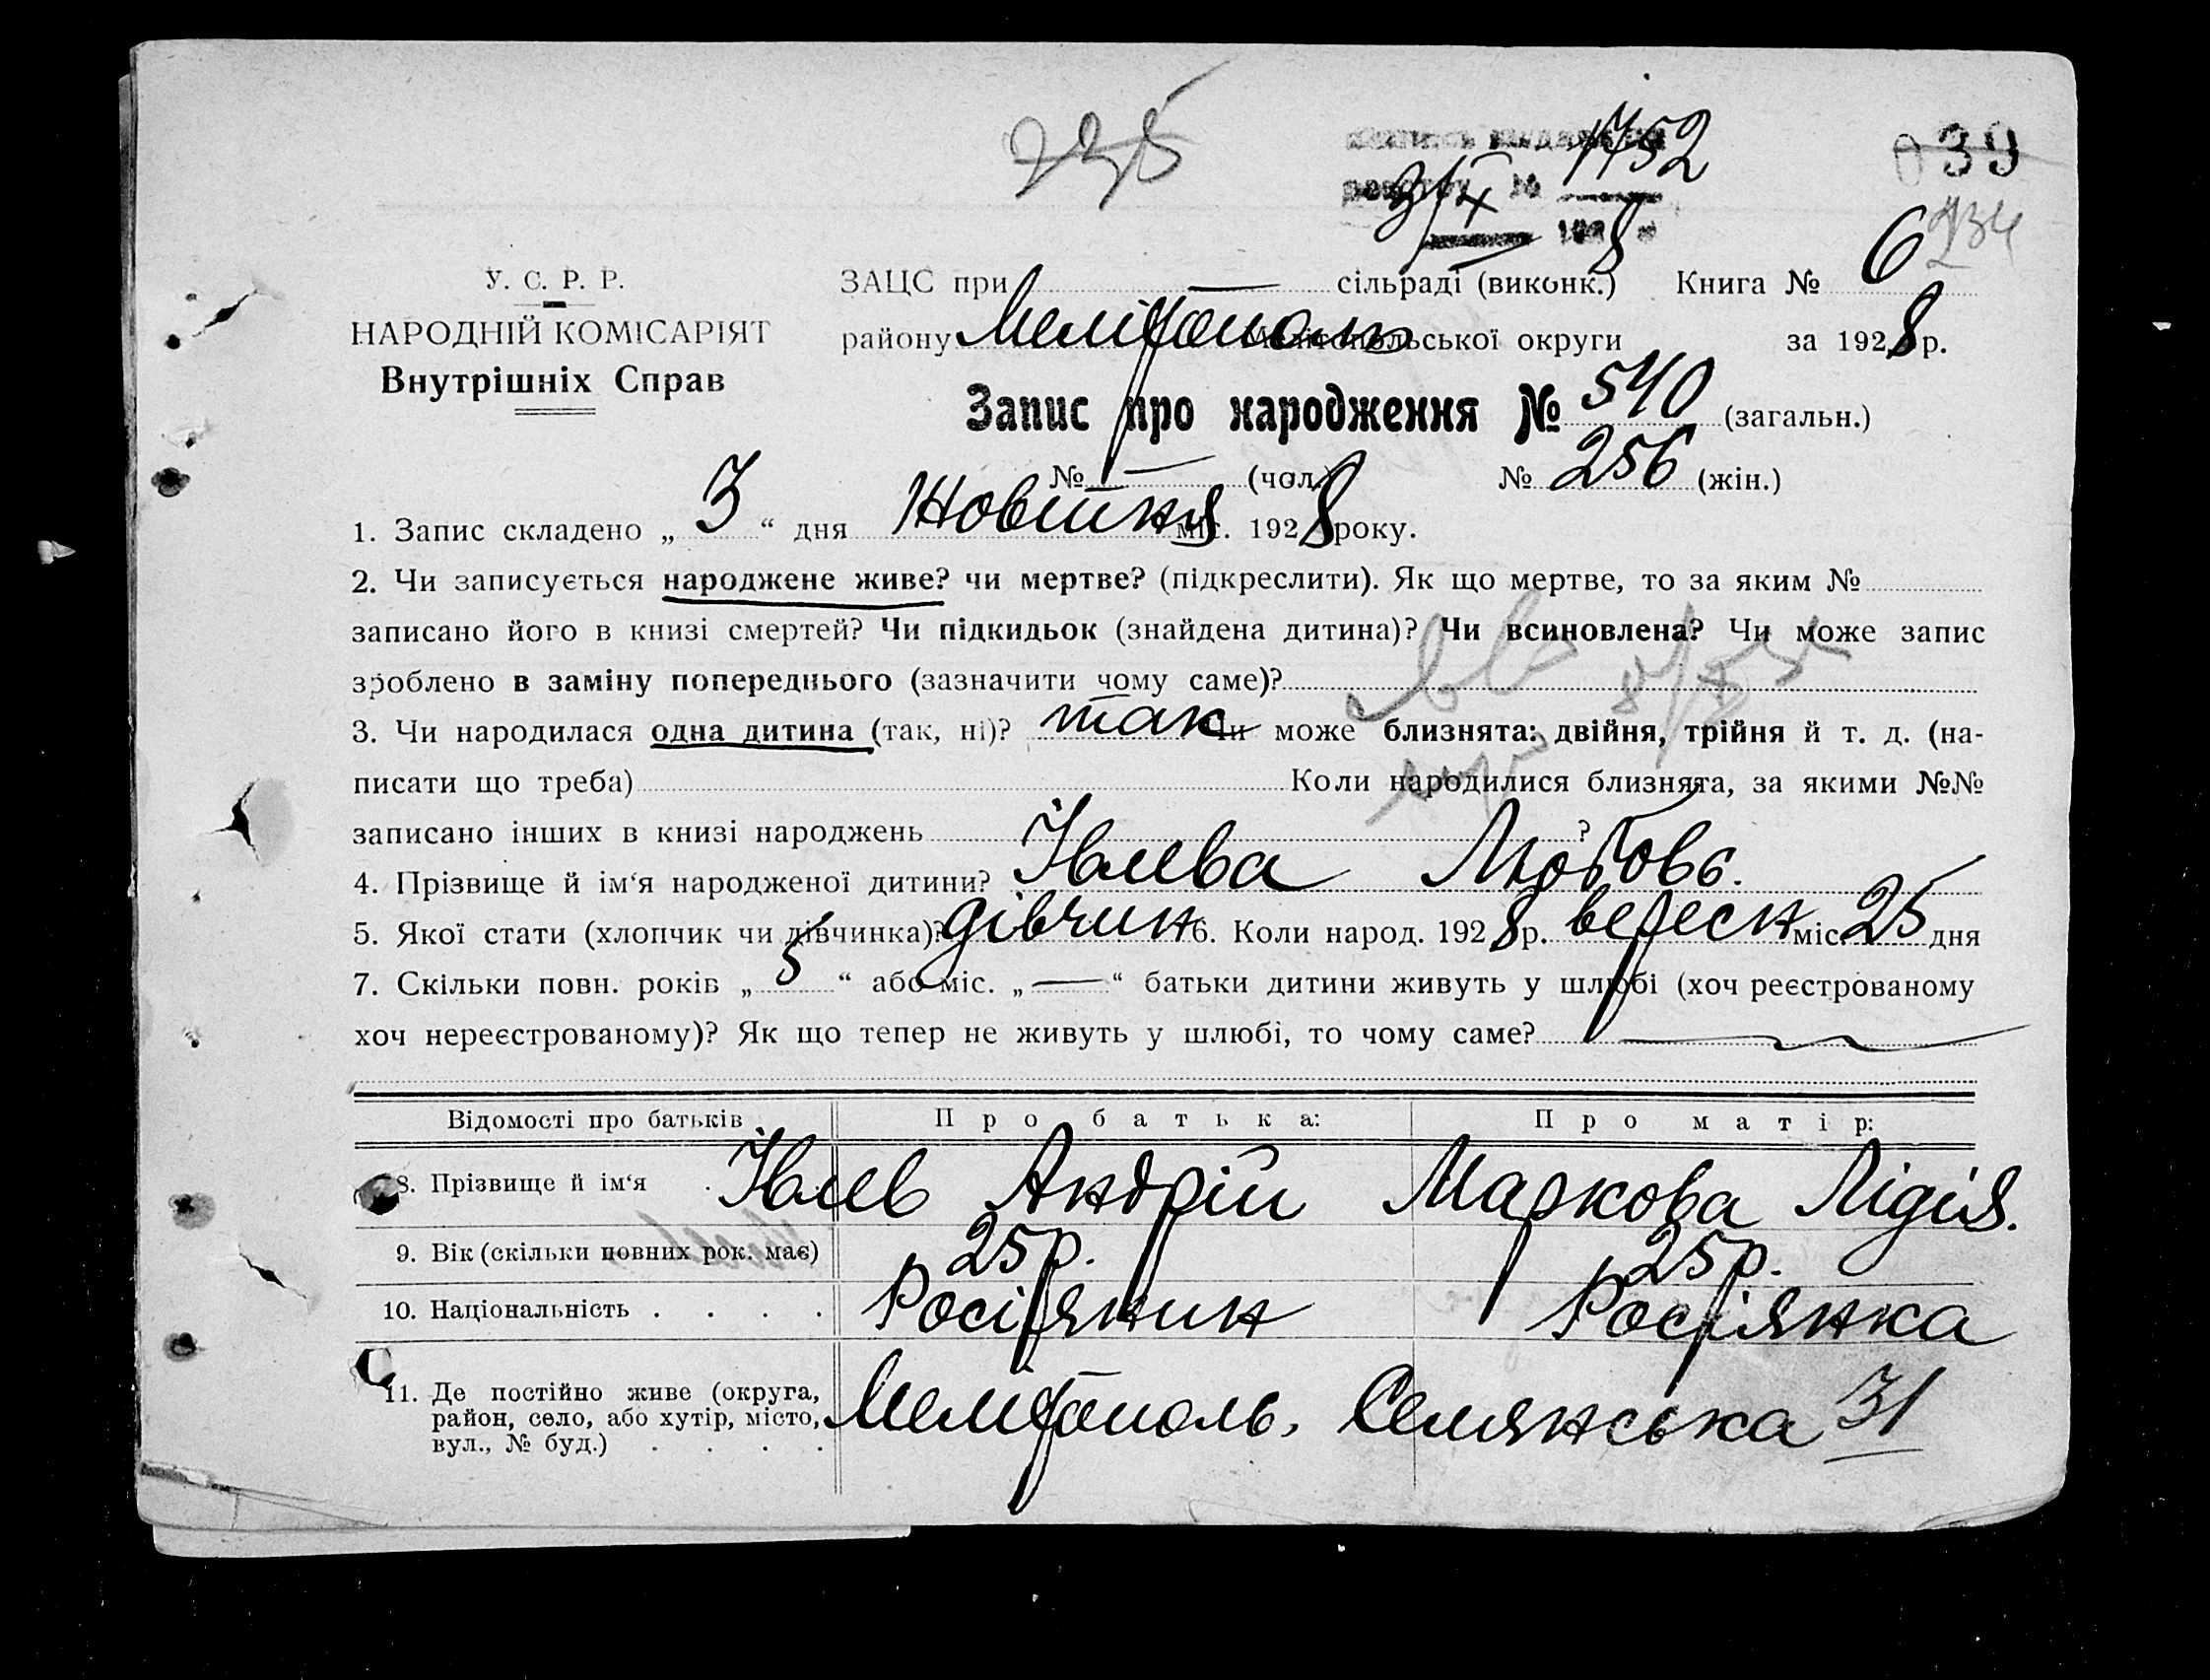 235
1752
3/X
192 8 р
039
234
У. С. Р. Р.
НАРОДНІЙ КОМІСАРІЯТ
Внутрішніх Справ
ЗАЦС при — сільраді (виконк.) Книга № 6
району Мелітополь Мелітопольської округи за 1928 р.
Запис про народження № 540 (загальн.)
№ — (чол.) № 256 (жін.)
1. Запис складено „ 3 “ дня Жовтня міс. 1928 року.
2. Чи записується народжене живе? чи мертве? (підкреслити). Як що мертве, то за яким №
записано його в книзі смертей? Чи підкидьок (знайдена дитина)? Чи всиновлена? Чи може запис
зроблено в заміну попереднього (зазначити чому саме)?
3. Чи народилася одна дитина (так, ні)? так Чи може близнята: двійня, трійня й т. д. (на-
писати що треба) Коли народилися близнята, за якими №№
записано інших в книзі народжень ?
4. Прізвище й ім‘я народженої дитини? Івлева Любовь.
5. Якої стати (хлопчик чи дівчинка)? дівчин 6. Коли народ. 1928 р. вересн міс. 25 дня
7. Скільки повн. років „ 5 “ або міс. „ — “ батьки дитини живуть у шлюбі (хоч реєстрованому
хоч нереєстрованому)? Як що тепер не живуть у шлюбі, то чому саме?
Відомості про батьків Про батька: Про матір:
8. Прізвище й ім‘я . Івлев Андрій Маркова Лідія.
9. Вік (скільки повних рок. має) 25 р. 25 р.
10. Національність . . . . Росіянин Росіянка
11. Де постійно живе (округа,
район, село, або хутір, місто, Мелітополь, Семянська 31
вул., № буд.) . . . .